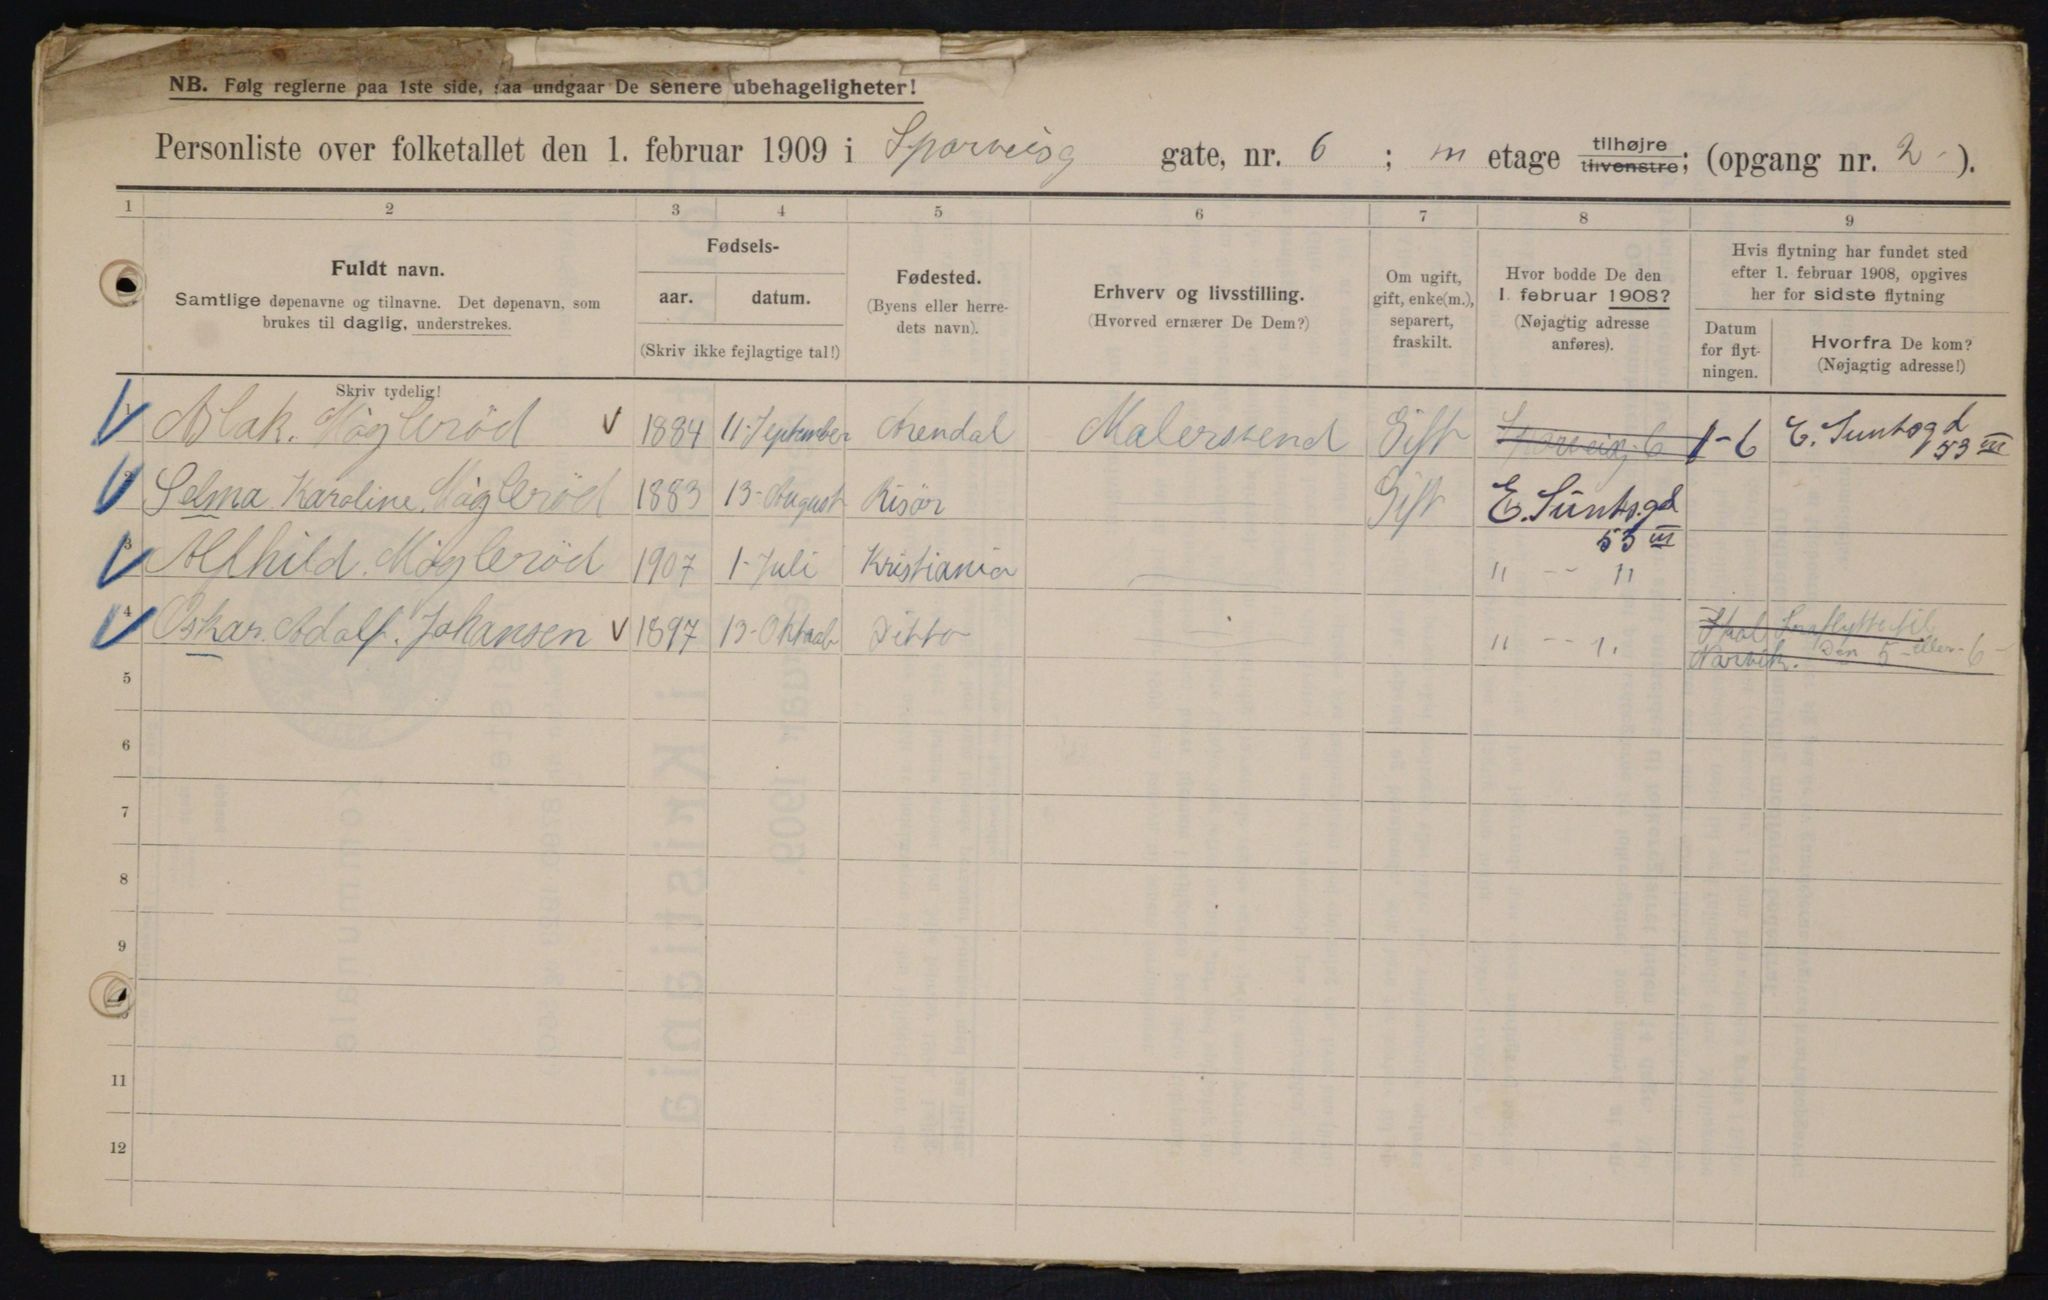 NB. Følg reglerne paa 1ste side, saa undgaar De senere ubehageligheter!
Personliste over folketallet den 1. februar 1909 i Sporveisg gate, nr. 6 ; III etage tilhøjre tilvenstre; (opgang nr. 2 ).
1 2 3 4 5 6 7 8 9
Fuldt navn.
Samtlige døpenavne og tilnavne. Det døpenavn, som
brukes til daglig, understrekes.
Skriv tydelig!
Fødsels-
aar. datum.
(Skriv ikke fejlagtige tal!)
Fødested.
(Byens eller herre-
dets navn).
Erhverv og livsstilling.
(Hvorved ernærer De Dem?)
Om ugift,
gift, enke(m.),
separert,
fraskilt.
Hvor bodde De den
1. februar 1908?
(Nøjagtig adresse
anføres).
Hvis flytning har fundet sted
efter 1. februar 1908, opgives
her for sidste flytning
Datum
for flyt-
ningen.
Hvorfra De kom?
(Nøjagtig adresse!)
1 Aslak. Møglerød 1884 11-September Arendal Malersvend Gift Sporveisg 6 1-6 E. Suntsgd 53 III
2 Selma Karoline Møglerød 1883 13-August Risör Gift E. Suntsgd 53 III
3 Alfhild. Møglerød 1907 1-Juli Kristiania " -- "
4 Oskar. Adolf. Johansen 1897 13-Oktob Ditto " -- "
Skal
Narvik. Den 5-eller-6-
5
6
7
8
9
11
12